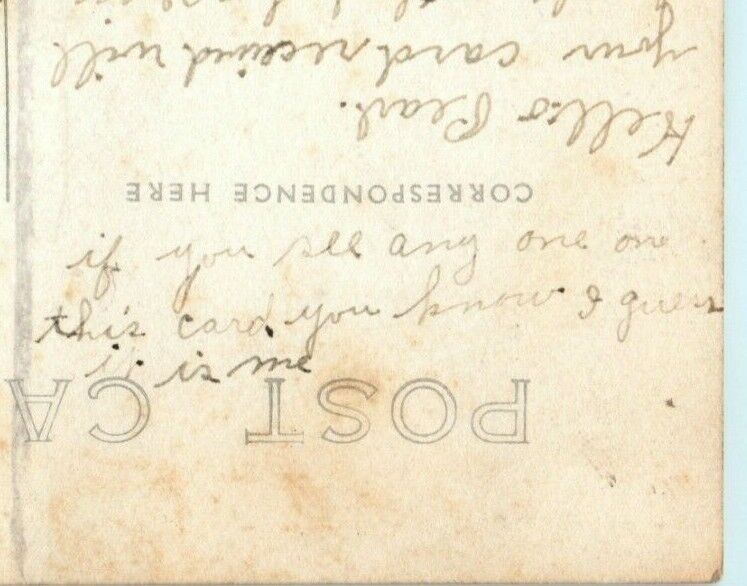 your card received will
Hello Pearl.
CORRESPONDENCE HERE
if you see any one one
this card you know I guess
it is me
POST CA